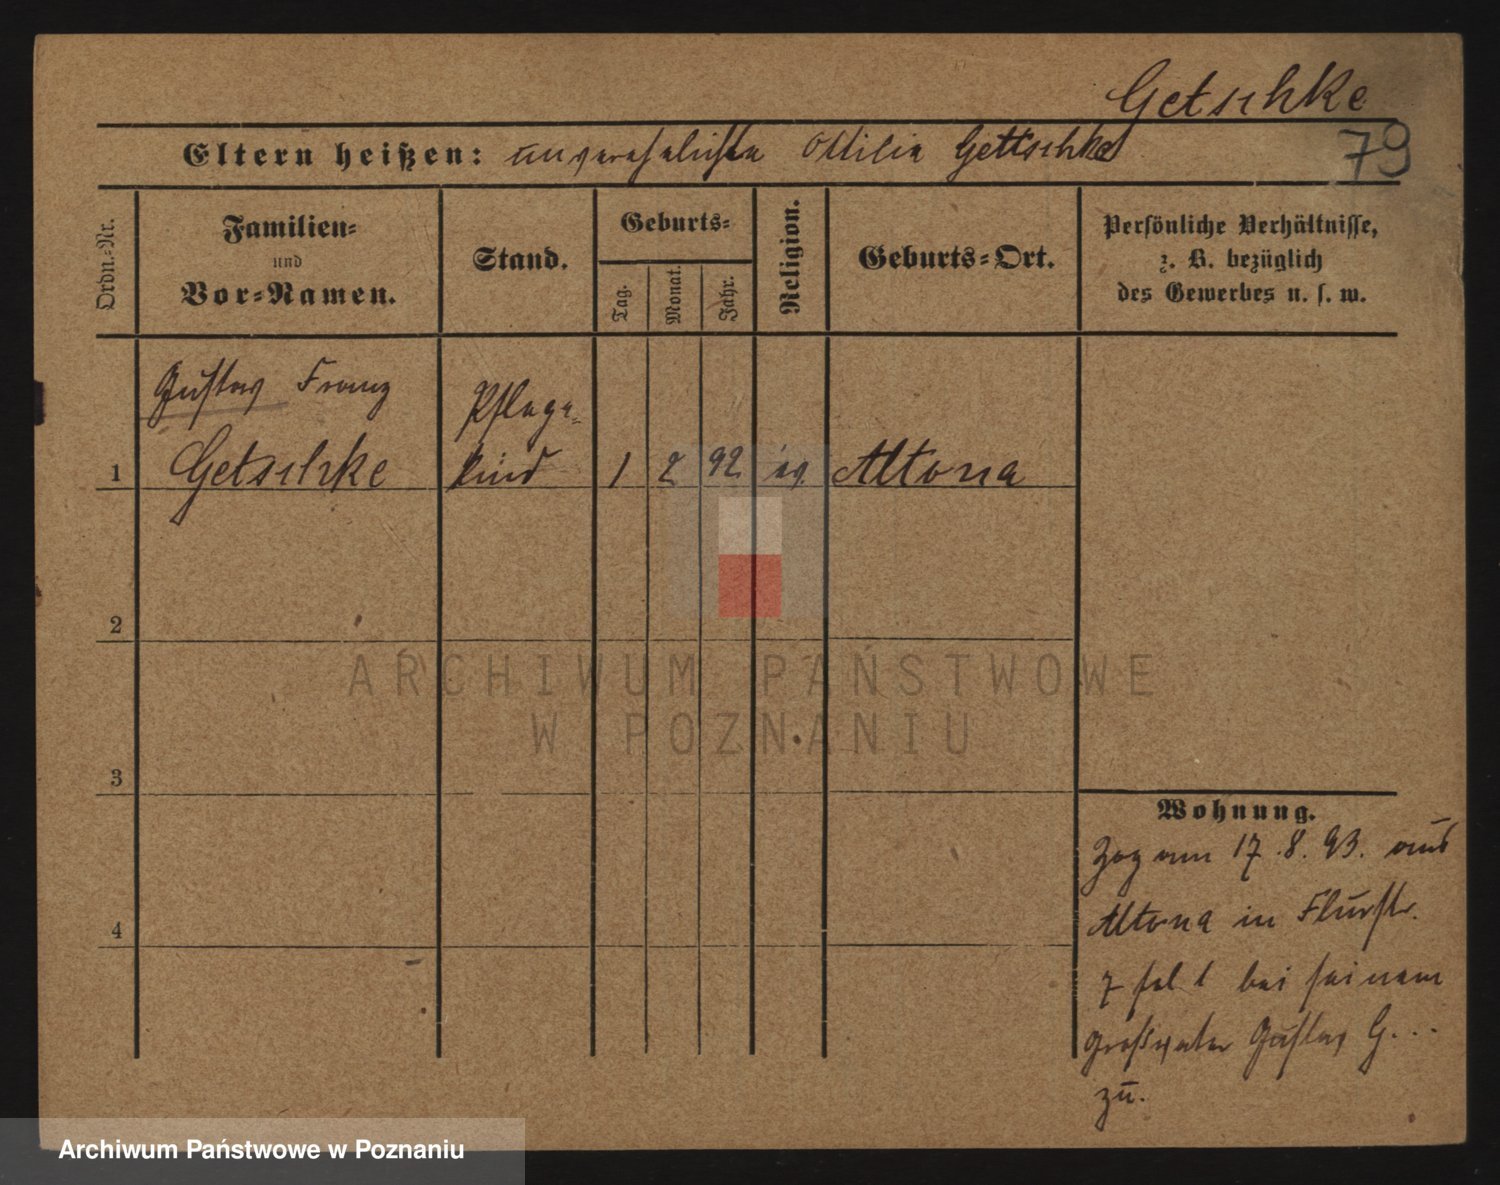 Getschke
79
Eltern heißen: unverehelichte Ottilie Gettschke
Ordn.-Nr.
Familien-
und
Vor-Namen.
Stand.
Geburts-
Tag.
Monat.
Jahr.
Religion.
Geburts-Ort.
Persönliche Verhältnisse,
z. B. bezüglich
des Gewerbes u. s. w.
Gustav Franz
Pflege-
1 Getschke kind 1 2 92 ev. Altona
2
3
4
Wohnung.
Zog am 17.8.93. aus
Altona in Flurstr.
7 bei seinem
Großvater Gustav G...
zu.
ARCHIWUM PAŃSTWOWE
W POZNANIU
Archiwum Państwowe w Poznaniu